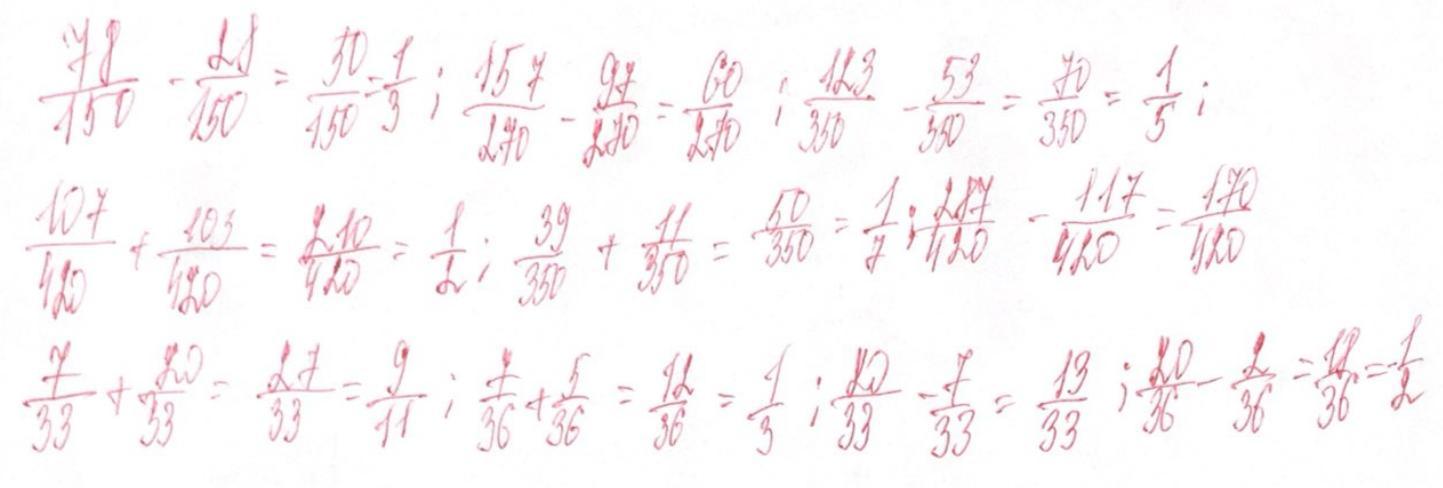 78/150 - 28/150 = 50/150 = 1/3 ; 157/270 - 97/270 = 60/270 ; 123/350 - 53/350 = 70/350 = 1/5 ;
107/420 + 103/420 = 210/420 = 1/2 ; 39/350 + 11/350 = 50/350 = 1/7 ; 287/420 - 117/420 = 170/420
7/33 + 20/33 = 27/33 = 9/11 ; 7/36 + 5/36 = 12/36 = 1/3 ; 20/33 - 7/33 = 13/33 ; 20/36 - 2/36 = 18/36 = 1/2